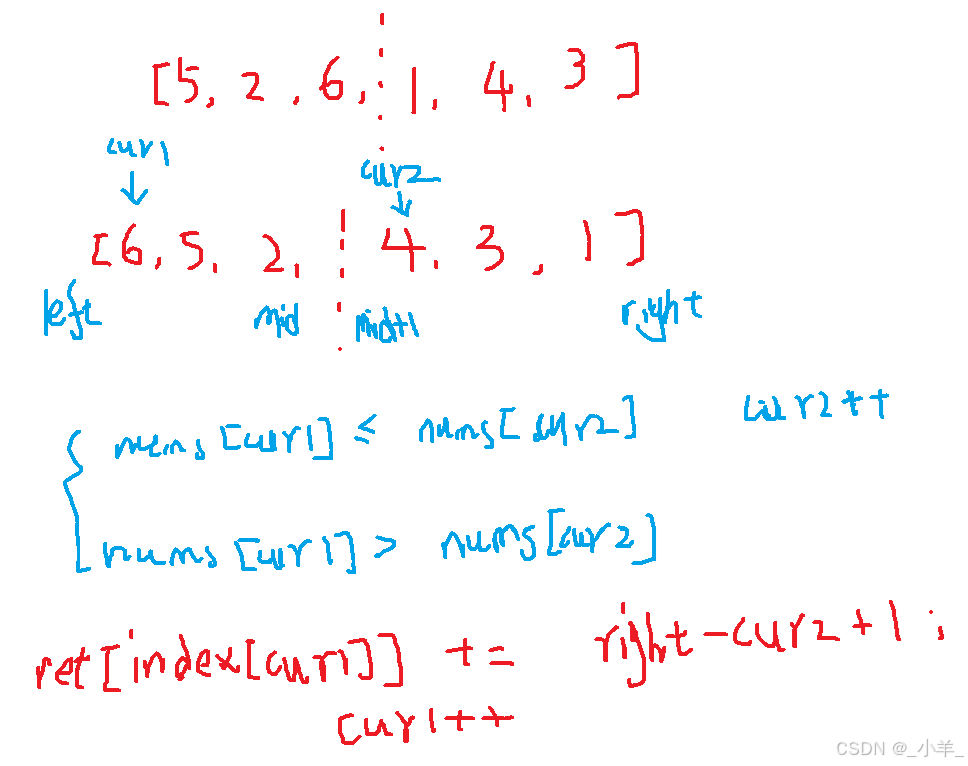 [5, 2, 6, 1, 4, 3]
cur1
cur2
[6, 5, 2, 4, 3, 1]
left mid mid+1 right
nums[cur1] ≤ nums[cur2] cur2++
nums[cur1] > nums[cur2]
ret[index[cur1]] += right-cur2+1;
cur1++
CSDN @_小羊_